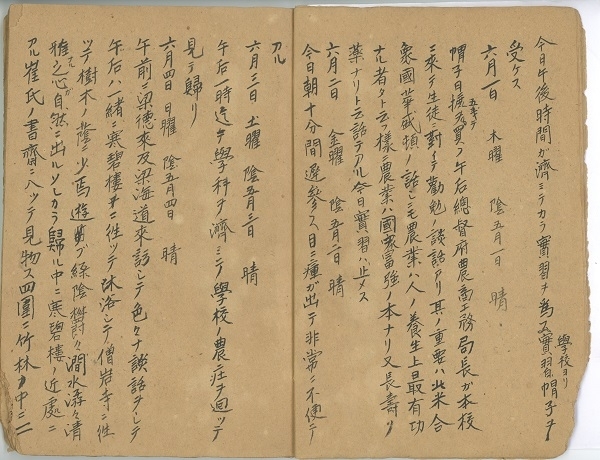 今日午後時間ガ濟ミテカラ實習ヲ爲ス實習帽子ヲ
學校ヨリ
受ケス
六月一日 木曜 陰五月一日 晴
帽子日換ヲ買フ午后總督府農商工務局長ガ本校
五拾戔
ニ來テ生徒ニ對イテ勸勉ノ談話アリ其ノ重要ハ北米合
衆國華盛頓ノ話シニモ農業ハ人ノ養生上日最有功
ナル者タト云フ樣ニ農業ハ國家富強ノ本ナリ又長壽ノ
藥ナリト云話テアル今日實習ハ止メス
六月二日 金曜 陰五月二日 晴
今日朝十分間遲參ス目ニ瘇ガ出テ非常ニ不便テ
アル
六月三日 土曜 陰五月三日 晴
午后一時迄テ學科ヲ濟ミテ學校ノ農庄ヲ廻ッテ
見テ歸リ
六月四日 日曜 陰五月四日 晴
午前ニ梁德來及梁海道來訪シテ色々ナ談話ヲシテ
午后ハ一緒ニ寒碧樓ニ往ッテ沐浴シテ僧岩寺ニ往
ッテ樹木ノ蔭ニ少焉遊ブ綠陰欝々澗水潺々淸
雅ナル心ガ自然ニ出ルソシカラ歸ル中ニ寒碧樓ノ近處ニ
アル崔氏ノ書齋ニ入ッテ見物ス四圍ニ竹林ガ中ニ二